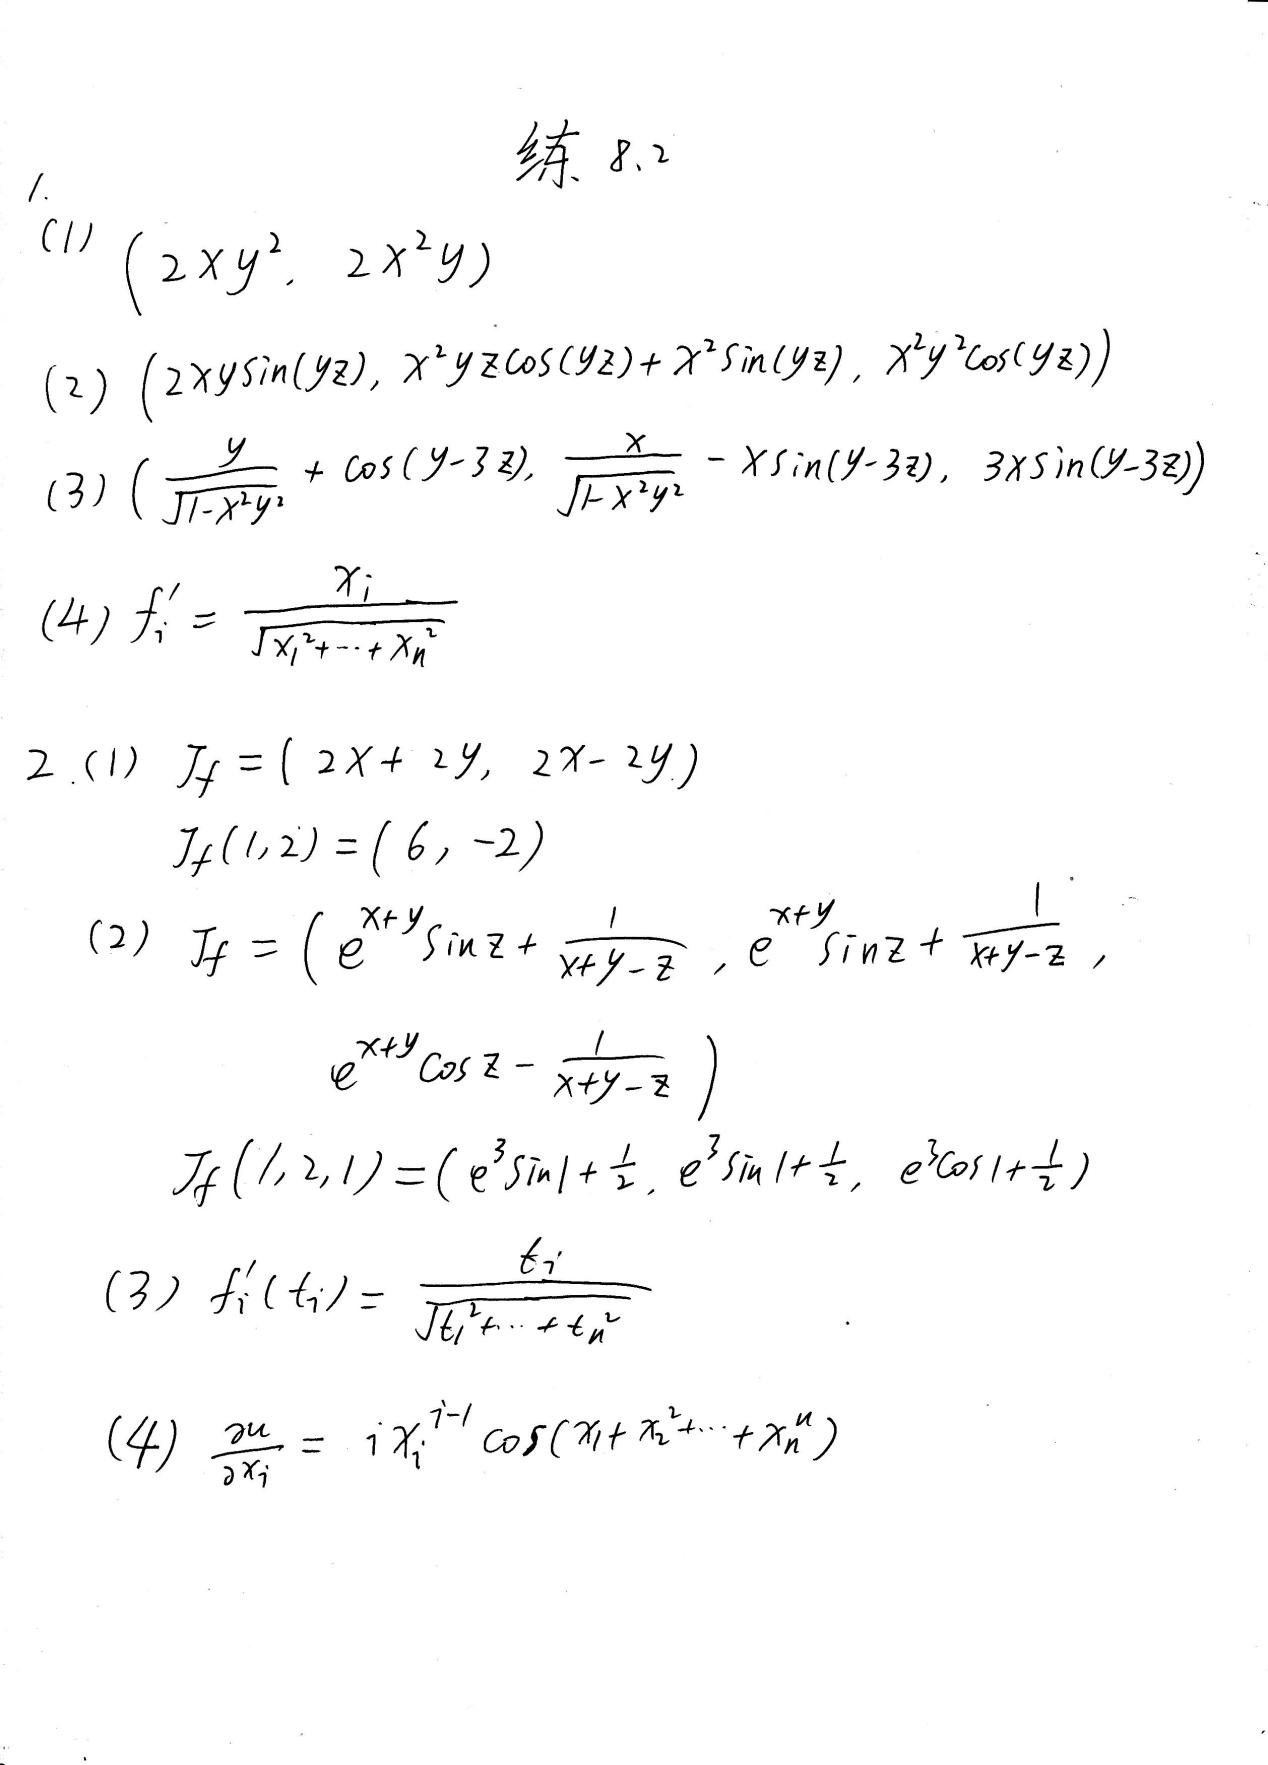 练 8.2
1.
(1) (2xy², 2x²y)
(2) (2xysin(yz), x²yzcos(yz)+x²sin(yz), x²y²cos(yz))
(3) (y/√(1-x²y²) + cos(y-3z), x/√(1-x²y²) - xsin(y-3z), 3xsin(y-3z))
(4) fᵢ′ = xᵢ/√(x₁²+⋯+xₙ²)
2.(1) J_f = (2x+2y, 2x-2y)
J_f(1,2) = (6, -2)
(2) J_f = (e^{x+y}sinz + 1/(x+y-z), e^{x+y}sinz + 1/(x+y-z),
e^{x+y}cosz - 1/(x+y-z))
J_f(1,2,1) = (e³sin1+1/2, e³sin1+1/2, e³cos1+1/2)
(3) fᵢ′(tᵢ) = tᵢ/√(t₁²+⋯+tₙ²)
(4) ∂u/∂xᵢ = ixᵢ^{i-1}cos(x₁+x₂²+⋯+xₙⁿ)